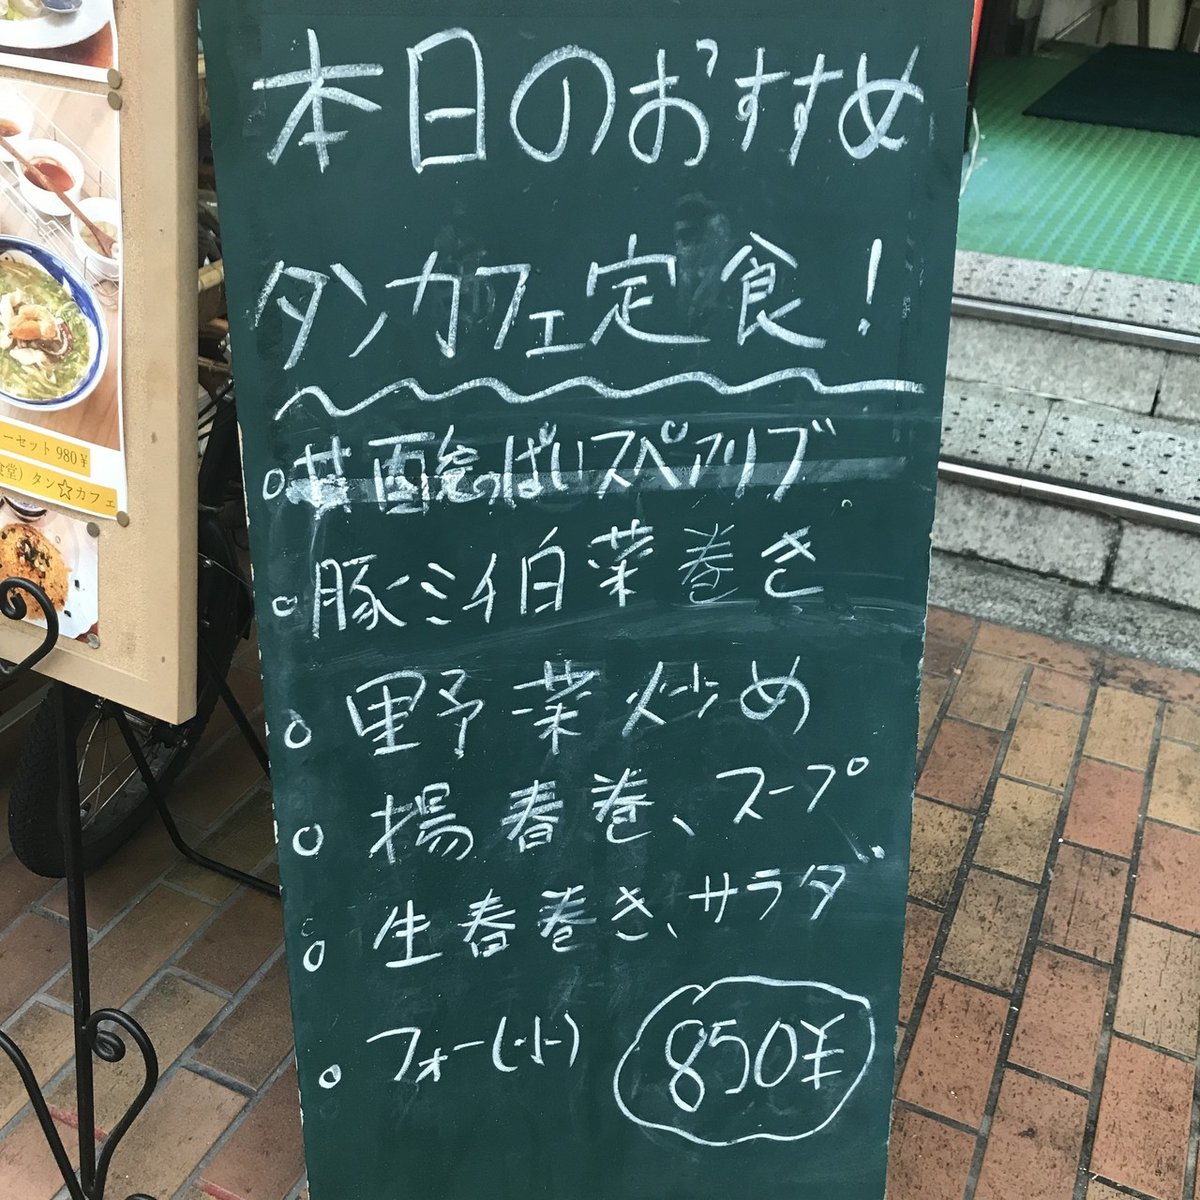 本日のおすすめ
タンカフェ定食!
酸っぱいスペアリブ
豚ミンチ白菜巻き
野菜炒め
揚春巻、スープ
生春巻き、サラダ
フォー(小)
850¥
ーセット 980¥
食堂)タン☆カフェ